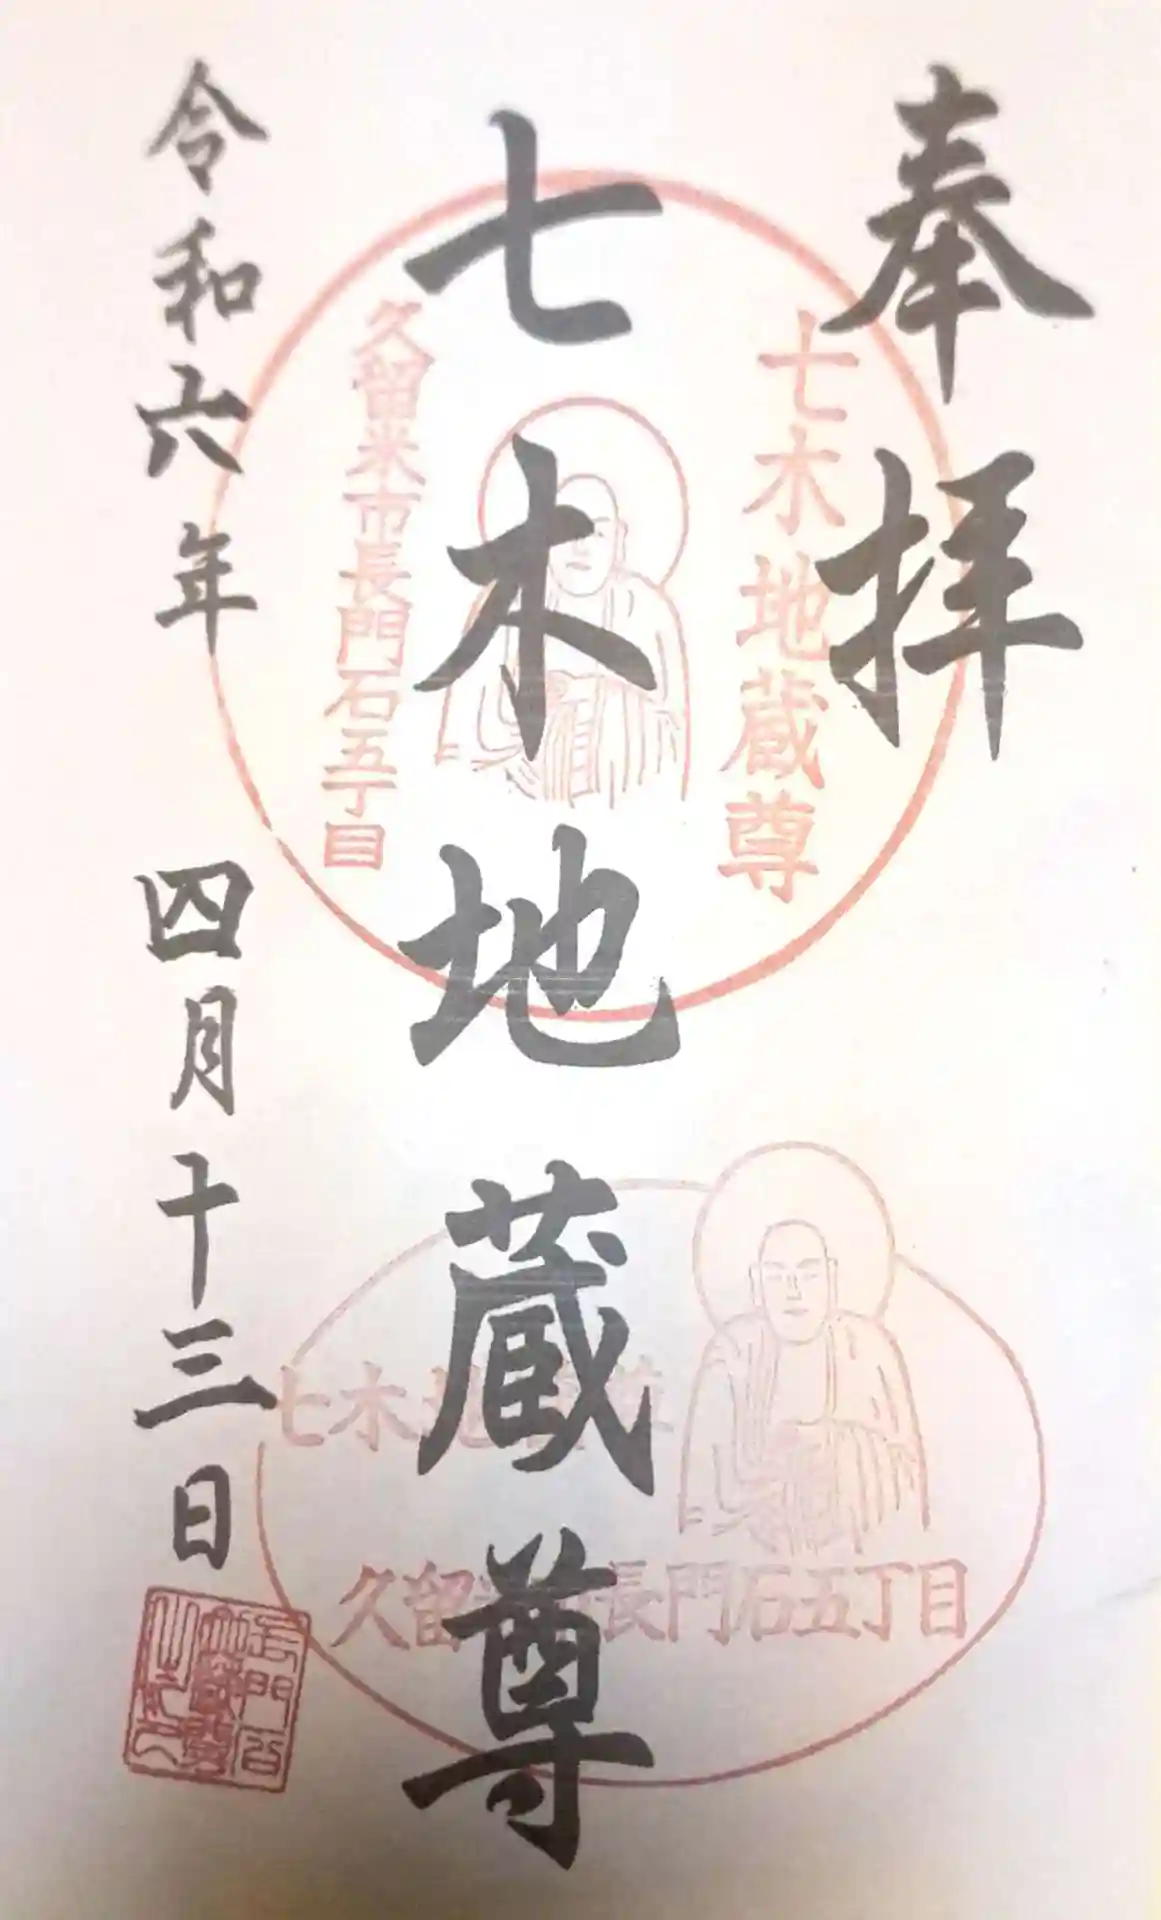 奉拝
七木地蔵尊
七木地蔵尊
久留米市長門石五丁目
令和六年 四月十三日
七木地蔵尊
久留米市長門石五丁目